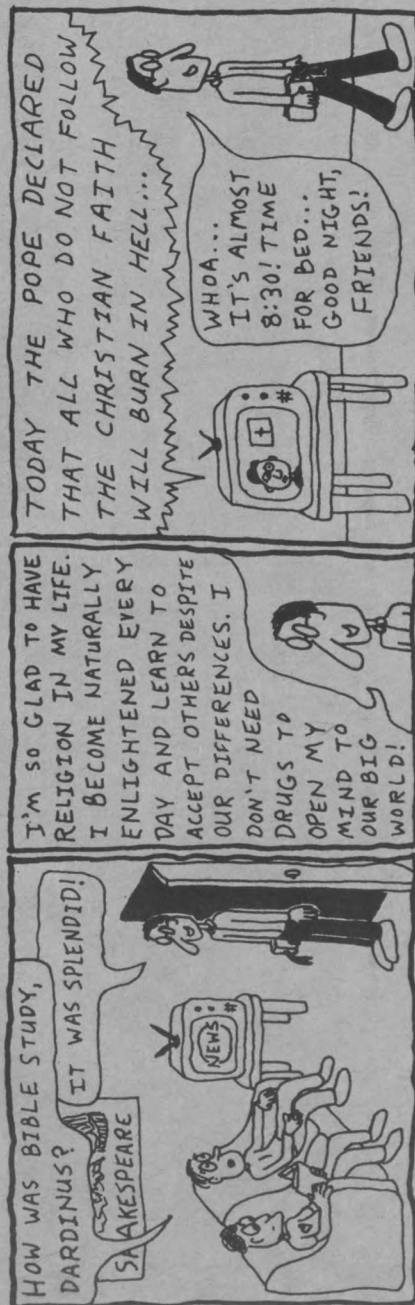 HOW WAS BIBLE STUDY,
DARDINUS?
IT WAS SPLENDID!
SHAKESPEARE
NEWS
I'M SO GLAD TO HAVE
RELIGION IN MY LIFE.
I BECOME NATURALLY
ENLIGHTENED EVERY
DAY AND LEARN TO
ACCEPT OTHERS DESPITE
OUR DIFFERENCES. I
DON'T NEED
DRUGS TO
OPEN MY
MIND TO
OUR BIG
WORLD!
TODAY THE POPE DECLARED
THAT ALL WHO DO NOT FOLLOW
THE CHRISTIAN FAITH
WILL BURN IN HELL...
WHOA...
IT'S ALMOST
8:30! TIME
FOR BED...
GOOD NIGHT,
FRIENDS!